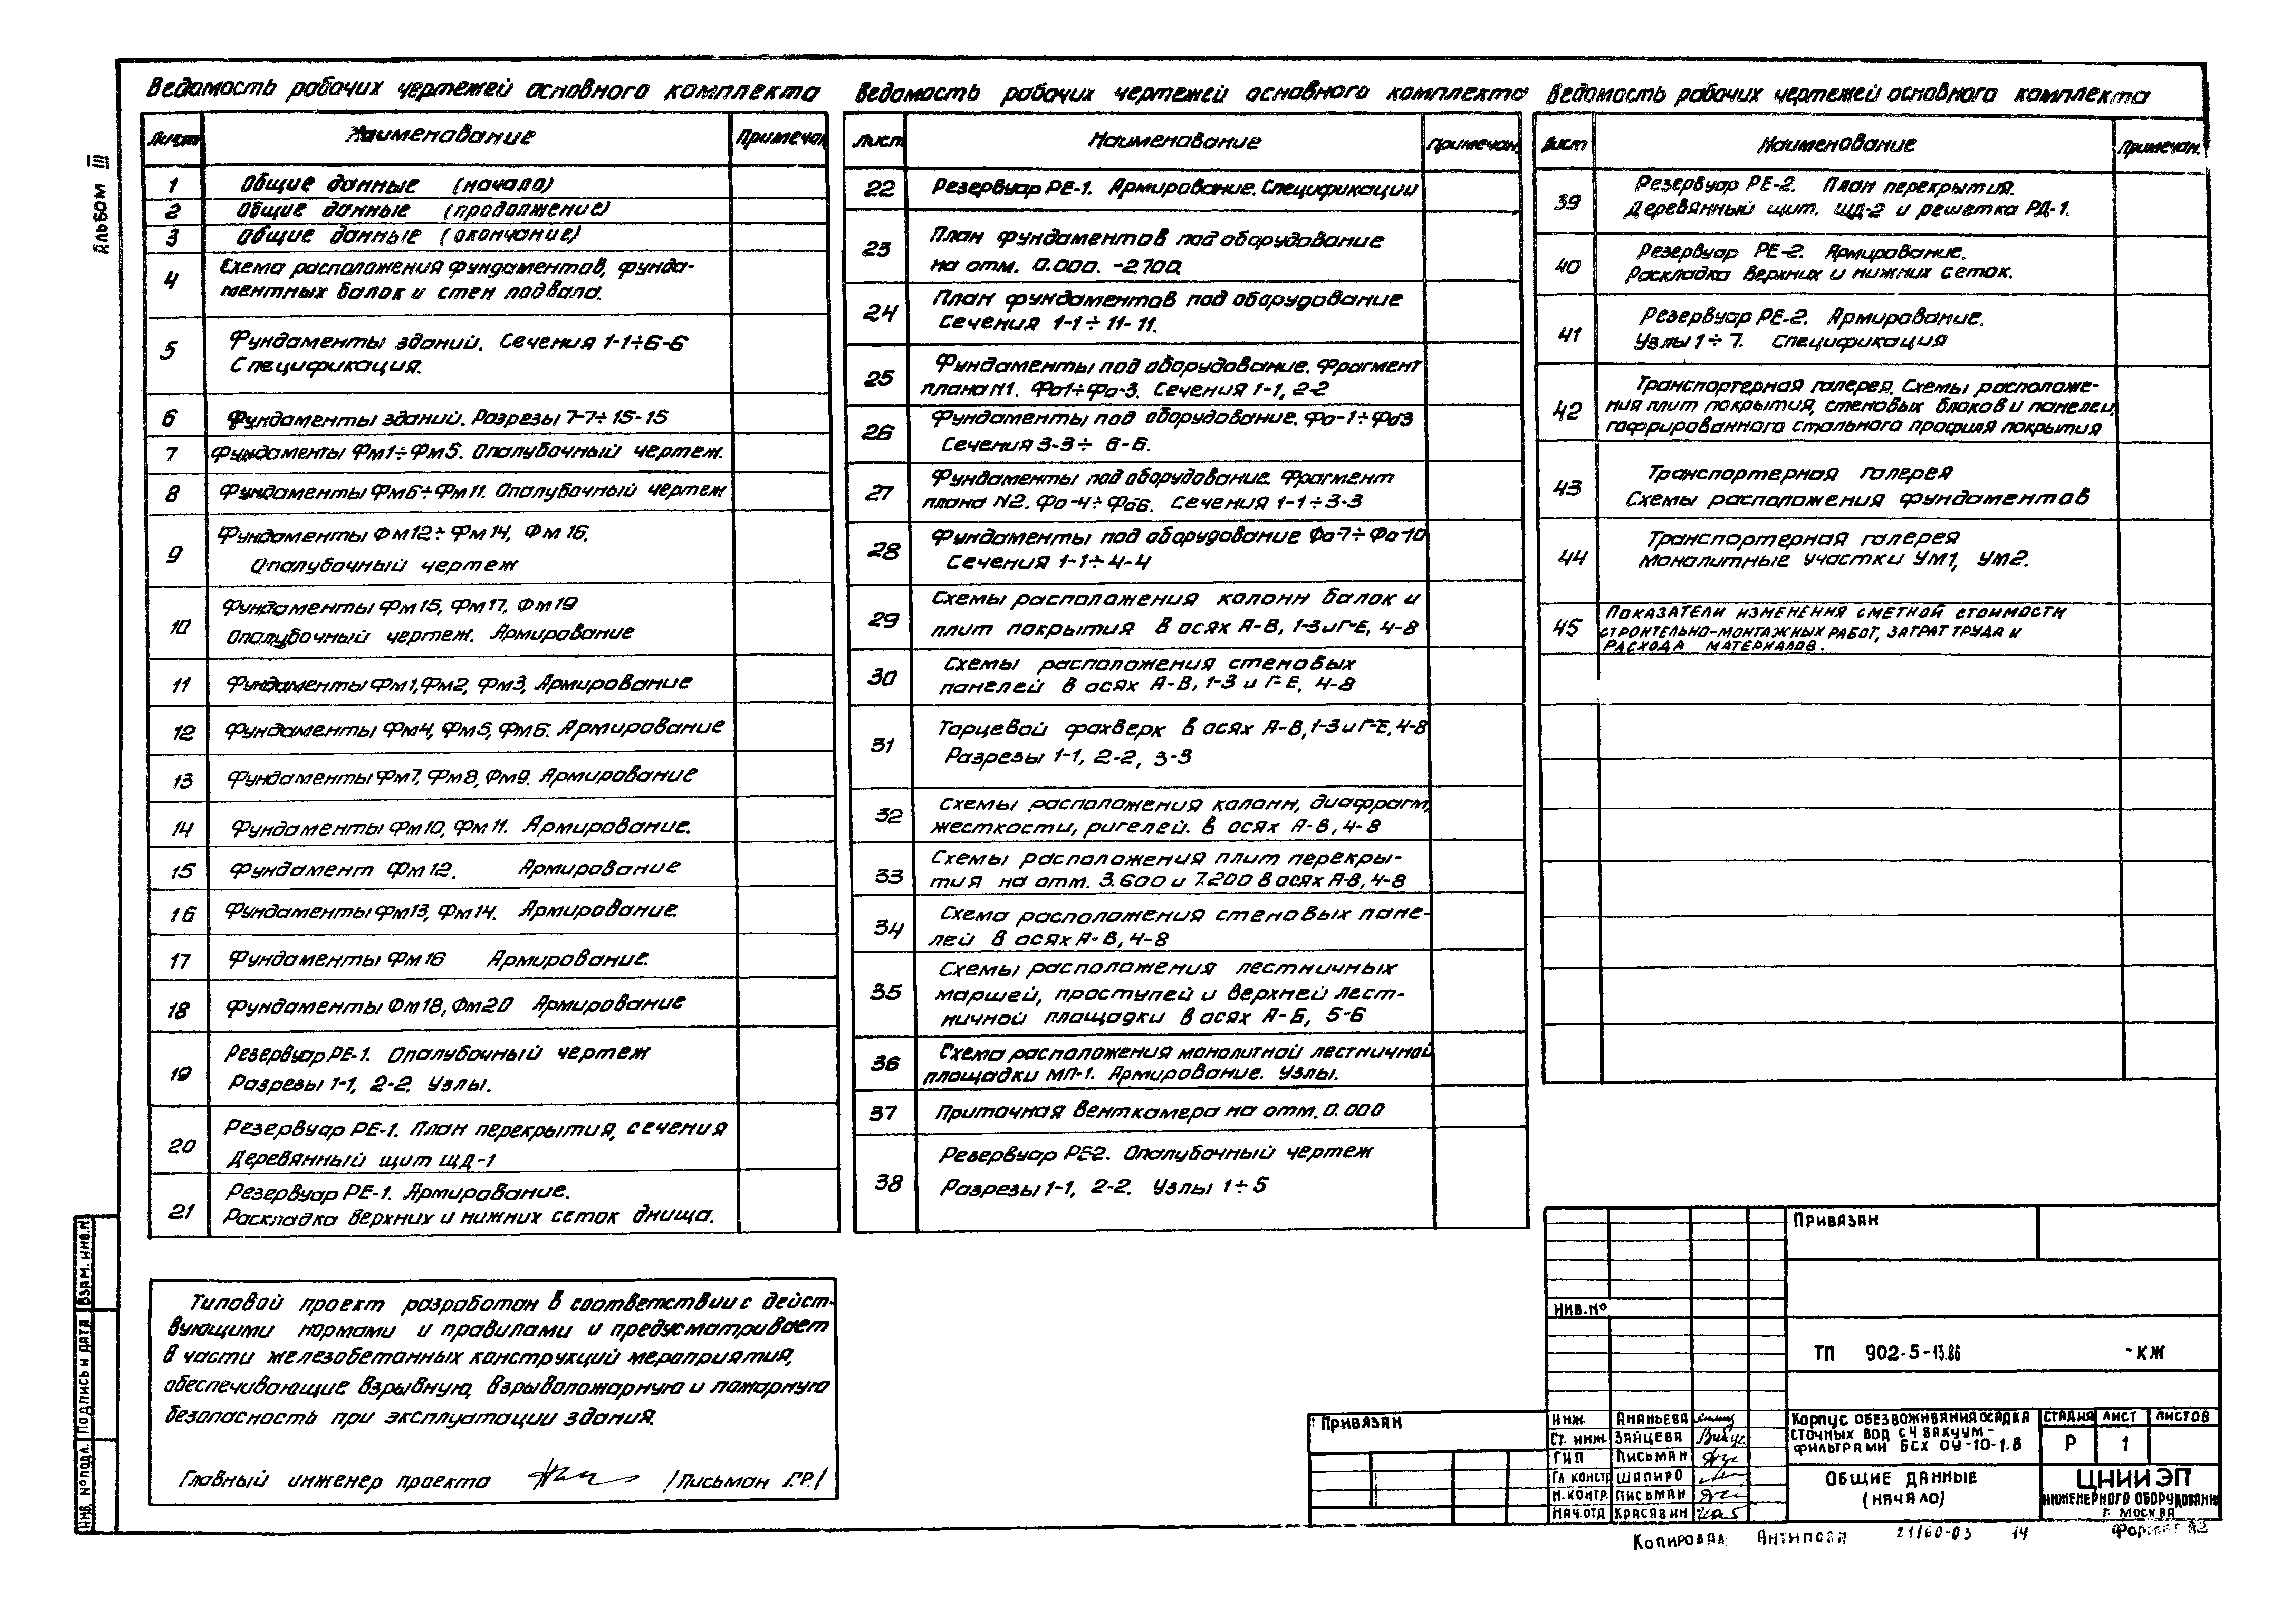 Альбом III
Ведомость рабочих чертежей основного комплекта
Лист Наименование Примечан.
1 Общие данные (начало)
2 Общие данные (продолжение)
3 Общие данные (окончание)
4 Схема расположения фундаментов, фунда-
ментных балок и стен подвала.
5 Фундаменты зданий. Сечения 1-1÷6-6
Спецификация.
6 Фундаменты зданий. Разрезы 7-7÷15-15
7 Фундаменты Фм1÷Фм5. Опалубочный чертеж.
8 Фундаменты Фм6÷Фм11. Опалубочный чертеж
9 Фундаменты Фм12÷Фм14, Фм16.
Опалубочный чертеж
10 Фундаменты Фм15, Фм17, Фм19
Опалубочный чертеж. Армирование
11 Фундаменты Фм1, Фм2, Фм3, Армирование
12 Фундаменты Фм4, Фм5, Фм6. Армирование
13 Фундаменты Фм7, Фм8, Фм9. Армирование
14 Фундаменты Фм10, Фм11. Армирование.
15 Фундамент Фм12. Армирование
16 Фундаменты Фм13, Фм14. Армирование.
17 Фундаменты Фм16 Армирование.
18 Фундаменты Фм18, Фм20 Армирование
19 Резервуар РЕ-1. Опалубочный чертеж
Разрезы 1-1, 2-2. Узлы.
20 Резервуар РЕ-1. План перекрытия, сечения
Деревянный щит ЩД-1
21 Резервуар РЕ-1. Армирование.
Раскладка верхних и нижних сеток днища.
Ведомость рабочих чертежей основного комплекта
Лист Наименование Примечан.
22 Резервуар РЕ-1. Армирование. Спецификации
23 План фундаментов под оборудование
на отм. 0.000. -2700.
24 План фундаментов под оборудование
Сечения 1-1÷11-11.
25 Фундаменты под оборудование. Фрагмент
плана N1. Фо1÷Фо-3. Сечения 1-1, 2-2
26 Фундаменты под оборудование. Фо-1÷Фо3
Сечения 3-3÷6-6.
27 Фундаменты под оборудование. Фрагмент
плана N2. Фо-4÷Фо6. Сечения 1-1÷3-3
28 Фундаменты под оборудование Фо-7÷Фо-10
Сечения 1-1÷4-4
29 Схемы расположения колонн балок и
плит покрытия в осях А-В, 1-3 и Г-Е, 4-8
30 Схемы расположения стеновых
панелей в осях А-В, 1-3 и Г-Е, 4-8
31 Торцевой фахверк в осях А-В, 1-3 и Г-Е, 4-8
Разрезы 1-1, 2-2, 3-3
32 Схемы расположения колонн, диафрагм,
жесткости, ригелей. в осях А-В, 4-8
33 Схемы расположения плит перекры-
тия на отм. 3.600 и 7.200 в осях А-В, 4-8
34 Схема расположения стеновых пане-
лей в осях А-В, 4-8
35 Схемы расположения лестничных
маршей, проступей и верхней лест-
ничной площадки в осях А-Б, 5-6
36 Схема расположения монолитной лестничной
площадки МП-1. Армирование. Узлы.
37 Приточная венткамера на отм. 0.000
38 Резервуар РЕ2. Опалубочный чертеж
Разрезы 1-1, 2-2. Узлы 1÷5
Ведомость рабочих чертежей основного комплекта
Лист Наименование Примечан.
39 Резервуар РЕ-2. План перекрытия.
Деревянный щит. ЩД-2 и решетка РД-1.
40 Резервуар РЕ-2. Армирование.
Раскладка верхних и нижних сеток.
41 Резервуар РЕ-2. Армирование.
Узлы 1÷7. Спецификация
42 Транспортерная галерея. Схемы расположе-
ния плит покрытия, стеновых блоков и панелей,
гофрированного стального профиля покрытия
43 Транспортерная галерея
Схемы расположения фундаментов
44 Транспортерная галерея
Монолитные участки Ум1, Ум2.
45 Показатели изменения сметной стоимости
строительно-монтажных работ, затрат труда и
расхода материалов.
Типовой проект разработан в соответствии с дейст-
вующими нормами и правилами и предусматривает
в части железобетонных конструкций мероприятия,
обеспечивающие взрывную, взрывопожарную и пожарную
безопасность при эксплуатации здания.
Главный инженер проекта /Письман Г.Р./
Инв. № подл. Подпись и дата Взам. инв. N
Привязан
Привязан
Инв. №
ТП 902-5-13.86 -КЖ
Инж. Ананьева
Ст. инж. Зайцева
ГИП Письман
Гл. констр Шапиро
Н. контр. Письман
Нач. отд Красавин
Корпус обезвоживания осадка
сточных вод с 4 вакуум-
фильтрами БСХ ОУ-10-1.8
Стадия Лист Листов
Р 1
Общие данные
(начало)
ЦНИИЭП
инженерного оборудования
г. Москва
Копировал: Антипова 21160-03 14 Формат А2